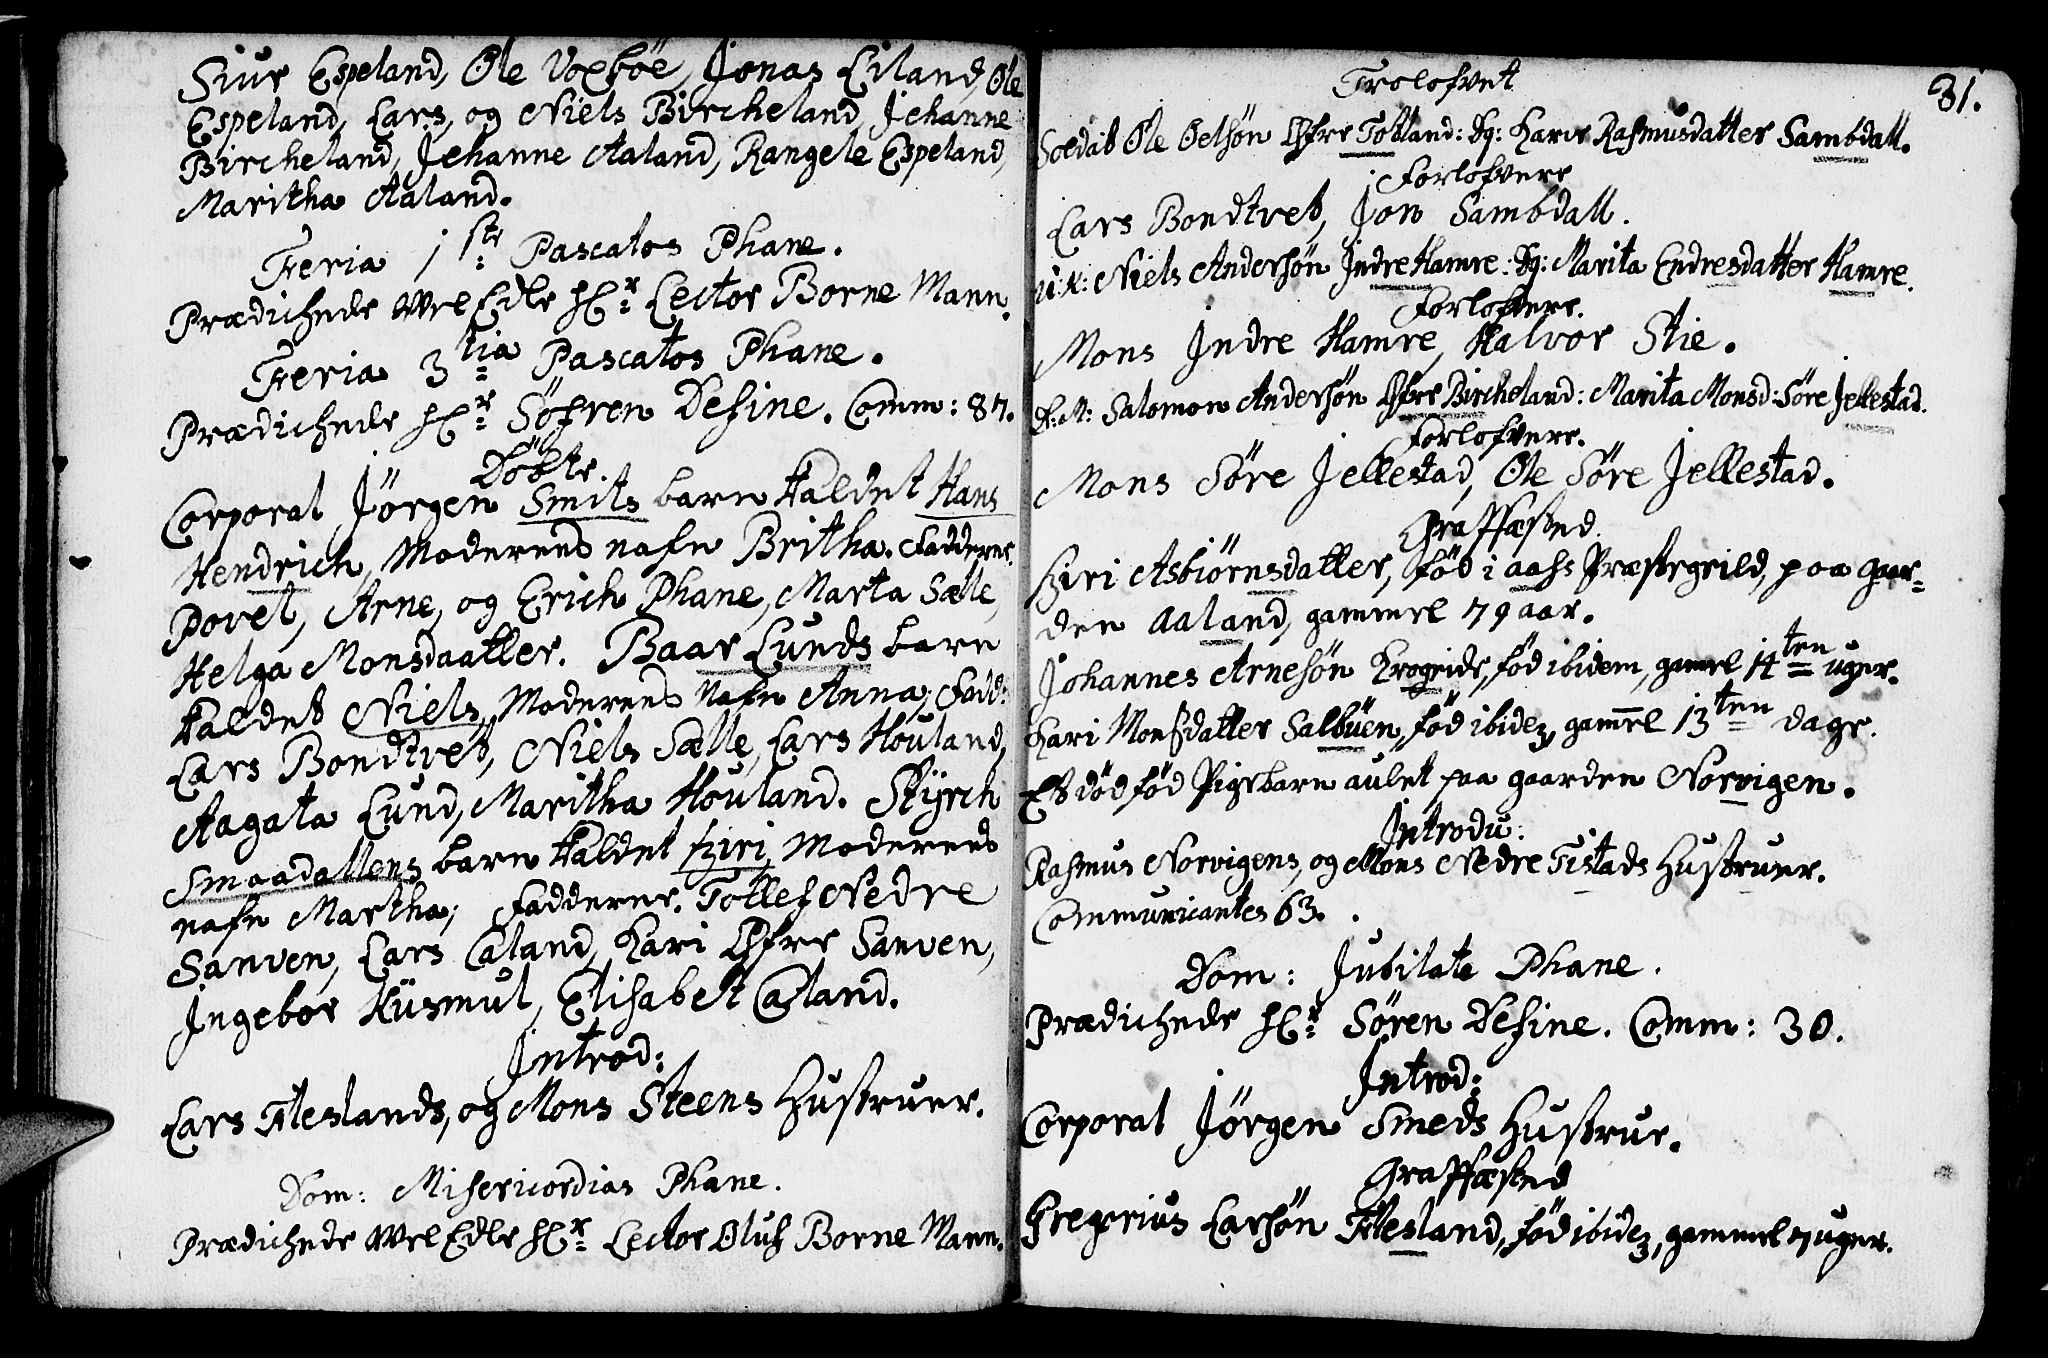 Siur Espeland, Ole Voxböe, Jonas Liland, Ole
Espeland, Lars, og Niels Bircheland, Jehanne
Bircheland, Jehanne Aaland, Rangele Espeland,
Maritha Aaland.
Feria 1ste Pascatos Phane.
Prædichede Wel Edle Hr: Lector Borne Mann.
Feria 3tia Pascatos Phane.
Prædichede Hr: Söfren Define. Comm: 87.
Döbte.
Corporal Jörgen Smits barn kaldet Hans
Hendrich, Moderens nafn Britha. Fadderne.
Povel, Arne, og Erich Phane, Marta Sælle,
Helga Monsdaatter. Baar Lunds barn
kaldet Niels, Moderens Nafn Anna; Fadd:
Lars Bondtvet, Niels Sælle, Lars Houland,
Aagata Lund, Maritha Houland. Styrch
Smaadallens barn kaldet Siri, Moderens
nafn Martha; Fadderne. Tollef Nedre
Sanven, Lars Caland, Kari Öfre Sanven,
Ingebor Husmul, Elisabet Caland.
Introd:
Lars Fleslands, og Mons Steens Hustruer.
Dom: Misericordias Phane.
Prædichede Wel Edle Hr: Lector Oluf Borne Mann.
31.
Trolofvet
Soldat Ole Oelsön Öfre Tokland: og: Karen Rasmusdatter Sambdall.
Forlofvere
Lars Bondtvet, Jon Sambdall.
U:K: Niels Andersön Indre Hamre: og: Marita Endresdatter Hamre.
Forlofvere.
Mons Indre Hamre, Halvor Stie.
E:M: Salomon Andersön Öfre Bircheland: Marita Monsd: Söre Jellestad.
Forlofvere.
Mons Söre Jellestad, Ole Söre Jellestad.
Graffæsted.
Siri Asbiörnsdatter, föd i Aahs Præstegield, paa gaar-
den Aaland, gammel 79 aar.
Johannes Arnesön Krogeide, föd ibidem, gamel 14ten uger.
Kari Monsdatter Salbuen, föd ibidem, gamel 13ten dage.
Et dödfød Pigebarn aulet paa gaarden Norvigen.
Introdu:
Rasmus Norvigens, og Mons Nedre Tistads Hustruer.
Communicantes 63.
Dom: Jubilate Phane.
Prædichede Hr: Sören Define. Comm: 30.
Introd:
Corporal Jörgen Smeds Hustrue.
Graffæsted
Gregorius Larsön Flesland, föd ibidem, gammel 7 uger.